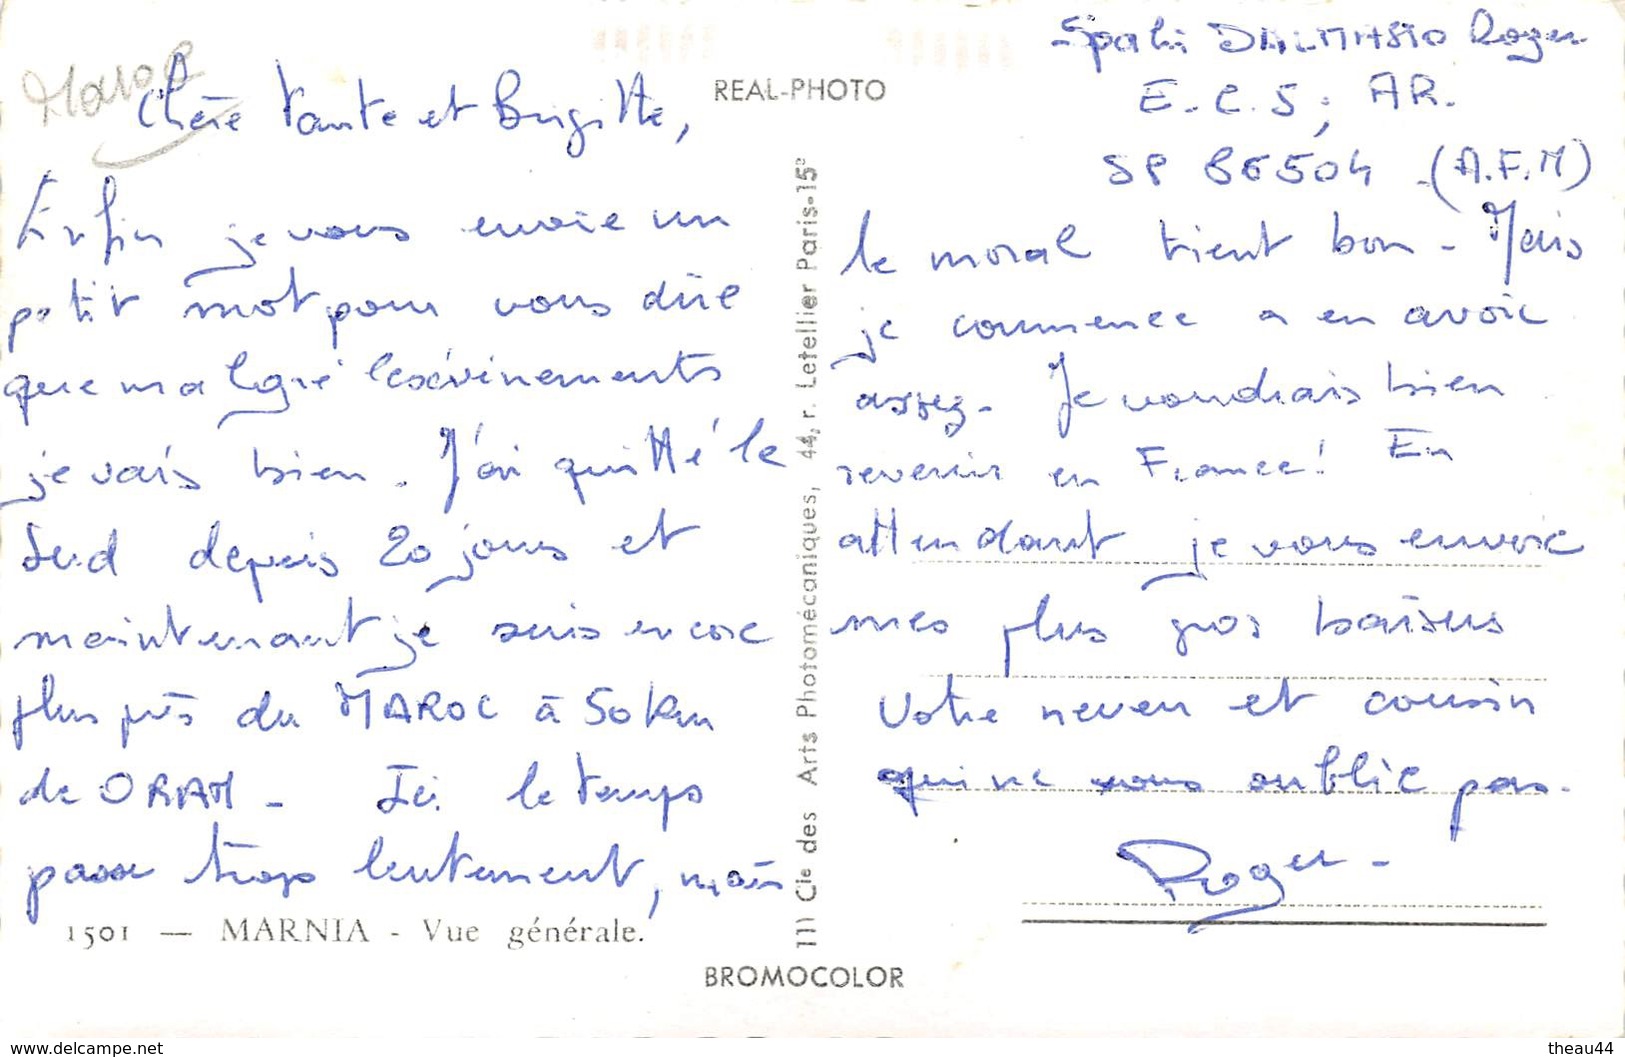 Maroc
Chère Tante et Brigitte,
Enfin je vous envoie un
petit mot pour vous dire
que malgré les évènements
je vais bien. J'ai quitté le
Sud depuis 20 jours et
maintenant je suis encore
plus près du MAROC à 50 km
de ORAN - Ici le temps
passe trop lentement, mais
1501 — MARNIA - Vue générale.
REAL-PHOTO
111 Cie des Arts Photomécaniques, 44, r. Letellier Paris-15e
BROMOCOLOR
Spahi DALMASIO Roger
E.C.S; AR.
SP 86504 (A.F.N)
le moral tient bon - Mais
je commence a en avoir
assez. Je voudrais bien
revenir en France! En
attendant je vous envoie
mes plus gros baisers
Votre neveu et cousin
qui ne vous oublie pas.
Roger -
www.delcampe.net
theau44